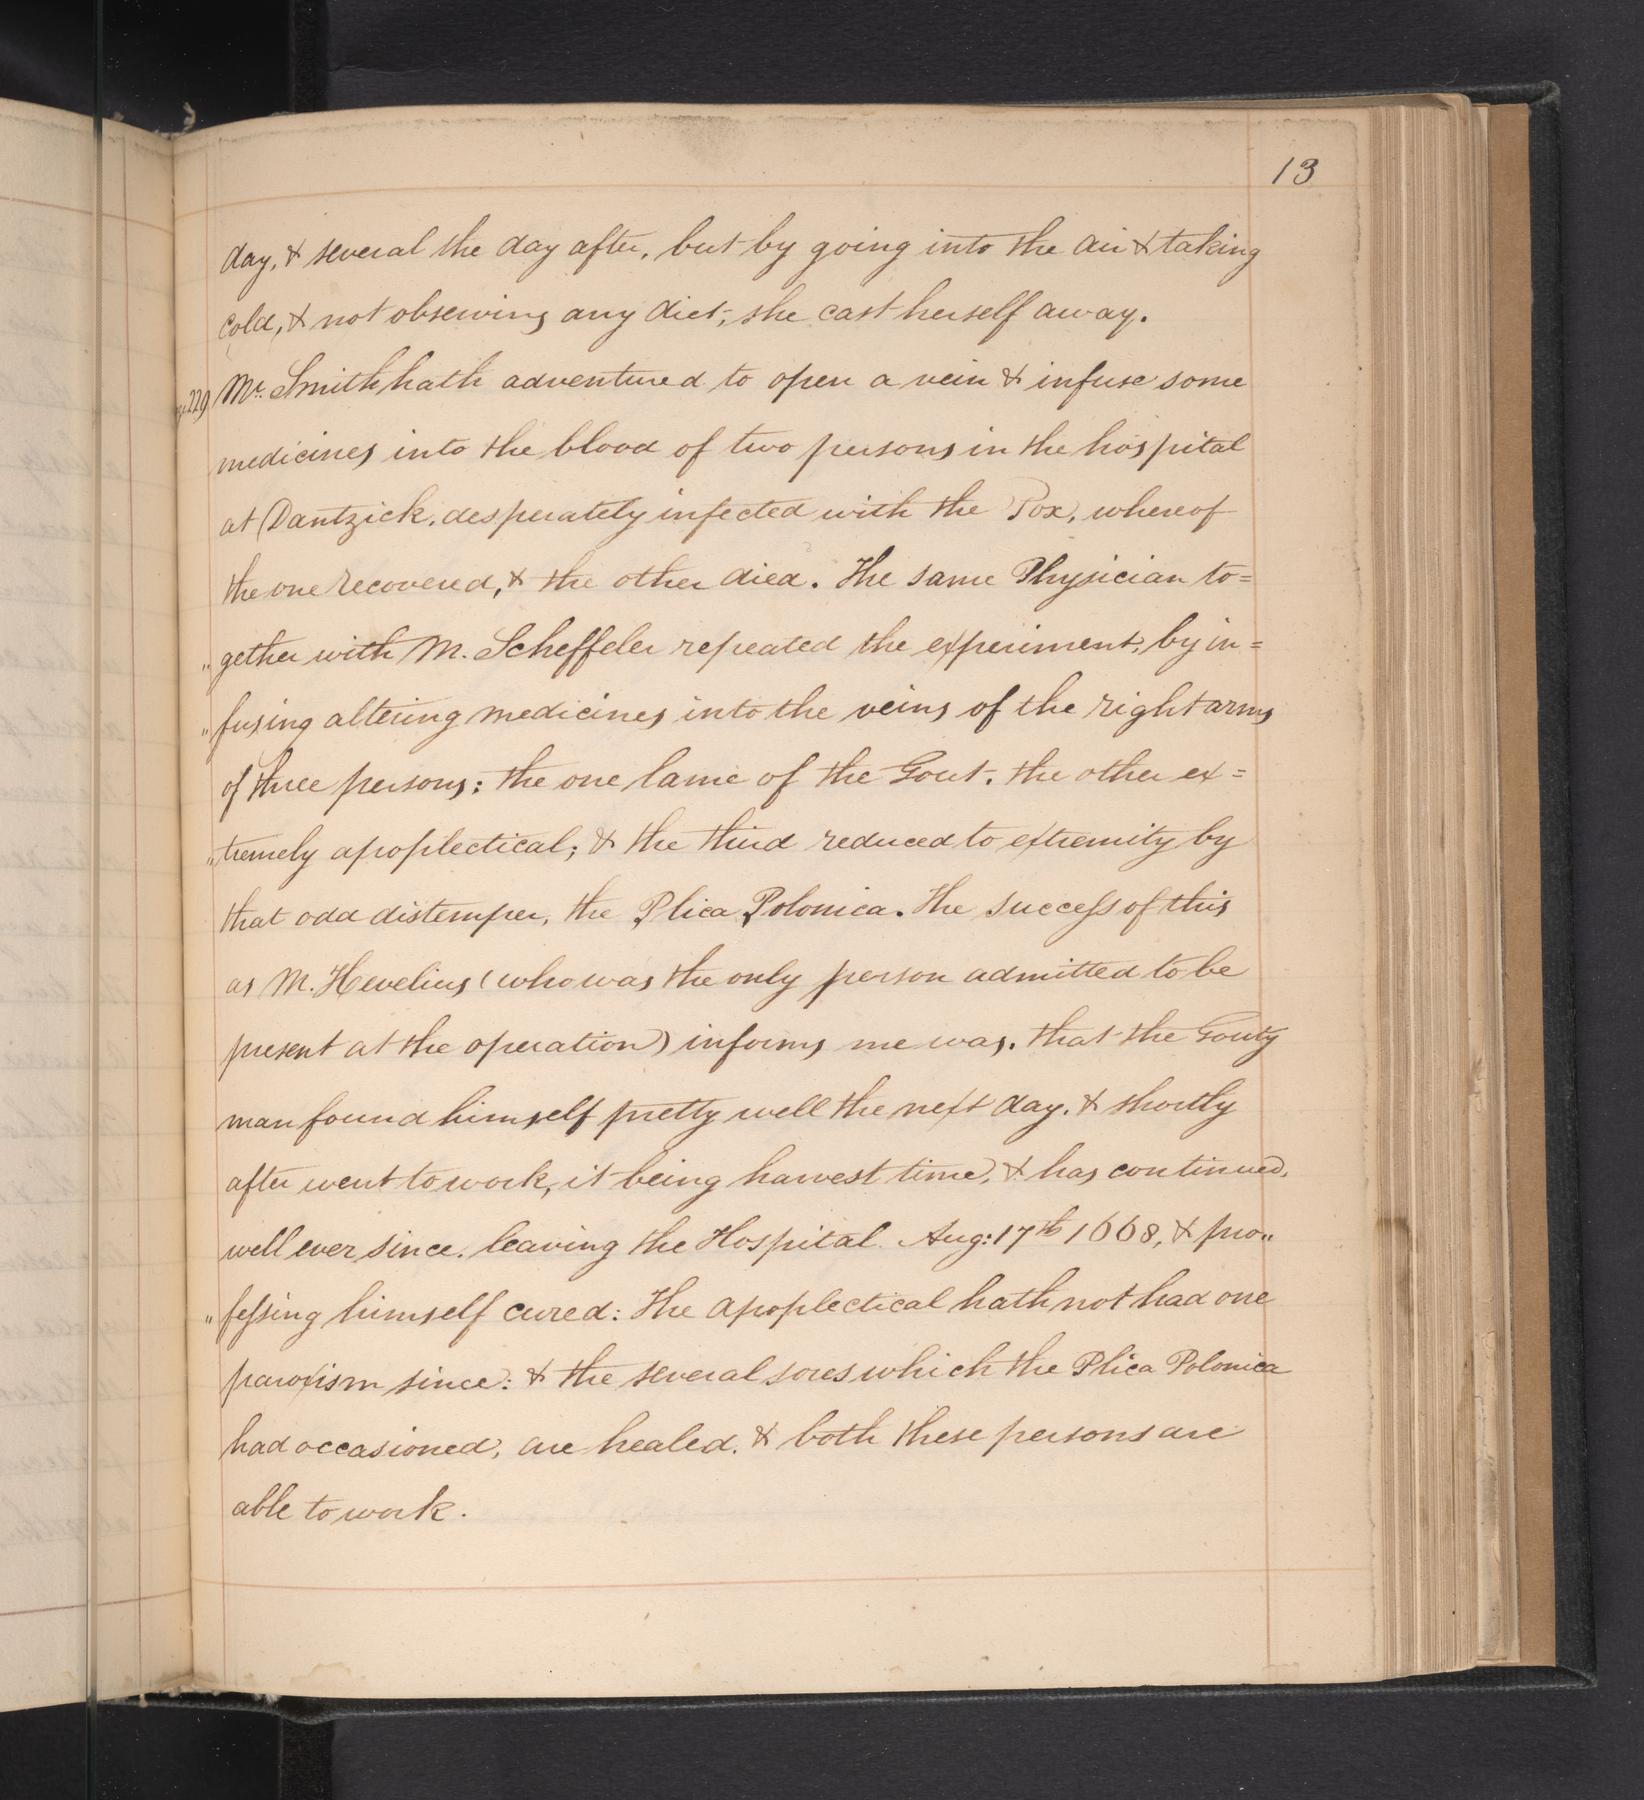 13
day, & several the day after, but by going into the air & taking
cold, & not observing any diet, she cast herself away.
p. 229 Mr. Smith hath adventured to open a vein & infuse some
medicines into the blood of two persons in the hospital
at Dantzick, desperately infected with the Pox, whereof
the one recovered, & the other died. The same Physician to=
"gether with M. Scheffeler repeated the experiment, by in=
"fusing altering medicines into the veins of the right arms
of three persons; the one lame of the Gout, the other ex=
"tremely apoplectical; & the third reduced to extremity by
that odd distemper, the Plica Polonica. The success of this
as M. Hevelius (who was the only person admitted to be
present at the operation) informs me was, that the Gouty
man found himself pretty well the next day, & shortly
after went to work, it being harvest time, & has continued,
well ever since, leaving the Hospital Aug: 17th 1668, & pro"
"fessing himself cured: The apoplectical hath not had one
paroxism since: & the several sores which the Plica Polonica
had occasioned, are healed, & both these persons are
able to work.